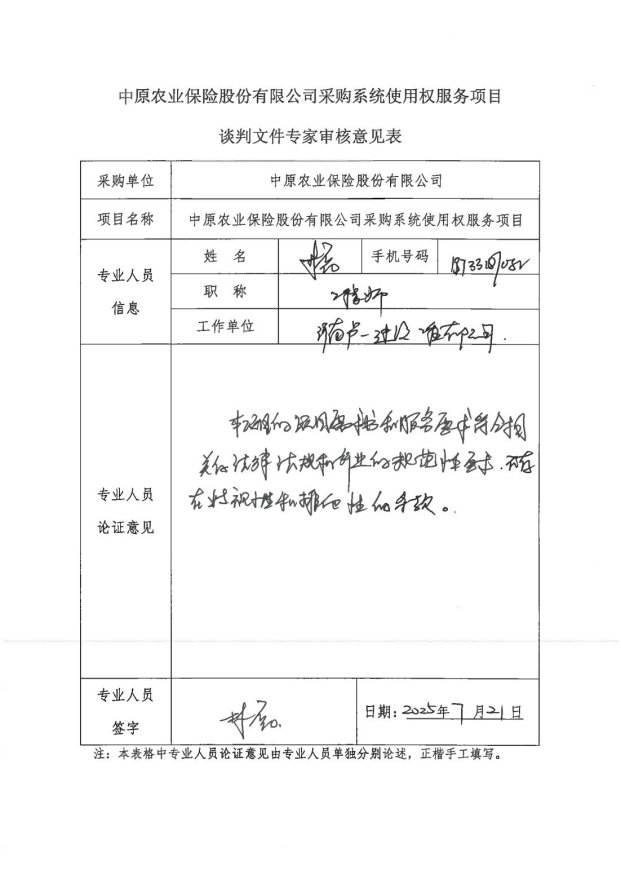 中原农业保险股份有限公司采购系统使用权服务项目
谈判文件专家审核意见表
采购单位 中原农业保险股份有限公司
项目名称 中原农业保险股份有限公司采购系统使用权服务项目
专业人员信息
姓 名
手机号码
职 称 工程师
工作单位
专业人员论证意见
本项目的采购需求和服务要求符合相
关法律法规和行业的规范性要求,不存
在歧视性和排他性的条款。
专业人员签字
日期:2025年7月21日
注:本表格中专业人员论证意见由专业人员单独分别论述,正楷手工填写。